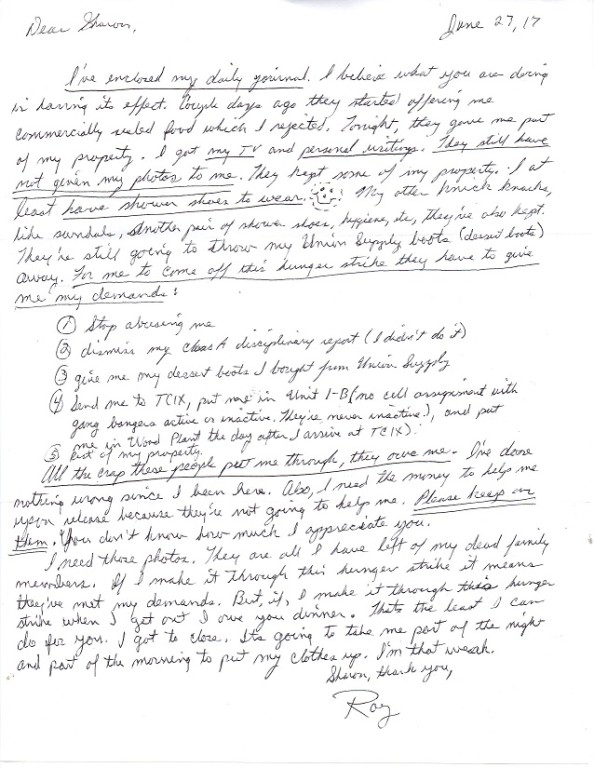 Dear Sharon,
June 27, 17
I've enclosed my daily journal. I believe what you are doing
is having its effect. Couple days ago they started offering me
commercially sealed food which I rejected. Tonight, they gave me part
of my property. I got my TV and personal writings. They still have
not given my photos to me. They kept some of my property. I at
least have shower shoes to wear. My other knick knacks,
like sandals, another pair of shower shoes, hygiene, etc, they've also kept.
They're still going to throw my Union Supply boots (dessert boots)
away. For me to come off this hunger strike they have to give
me my demands:
① Stop abusing me
② dismiss my Class A disciplinary report (I didn't do it)
③ give me my dessert boots I bought from Union Supply
④ Send me to TCIX, put me in Unit 1-B (no cell assignment with
gang bangers active or inactive. They're never inactive), and put
me in Wood Plant the day after I arrive at TCIX).
⑤ Rest of my property.
All the crap these people put me through, they owe me. I've done
nothing wrong since I been here. Also, I need the money to help me
upon release because they're not going to help me. Please keep on
them. You don't know how much I appreciate you.
I need those photos. They are all I have left of my dead family
members. If I make it through this hunger strike it means
they've met my demands. But, if, I make it through this hunger
strike when I get out I owe you dinner. Thats the least I can
do for you. I got to close. It's going to take me part of the night
and part of the morning to put my clothes up. I'm that weak.
Sharon, thank you,
Ray